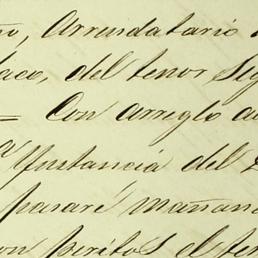 no, Arrendatario
taco, del tenor Sig
= Con arreglo a
Ynstancia del
pasaré mañana
on peritos el